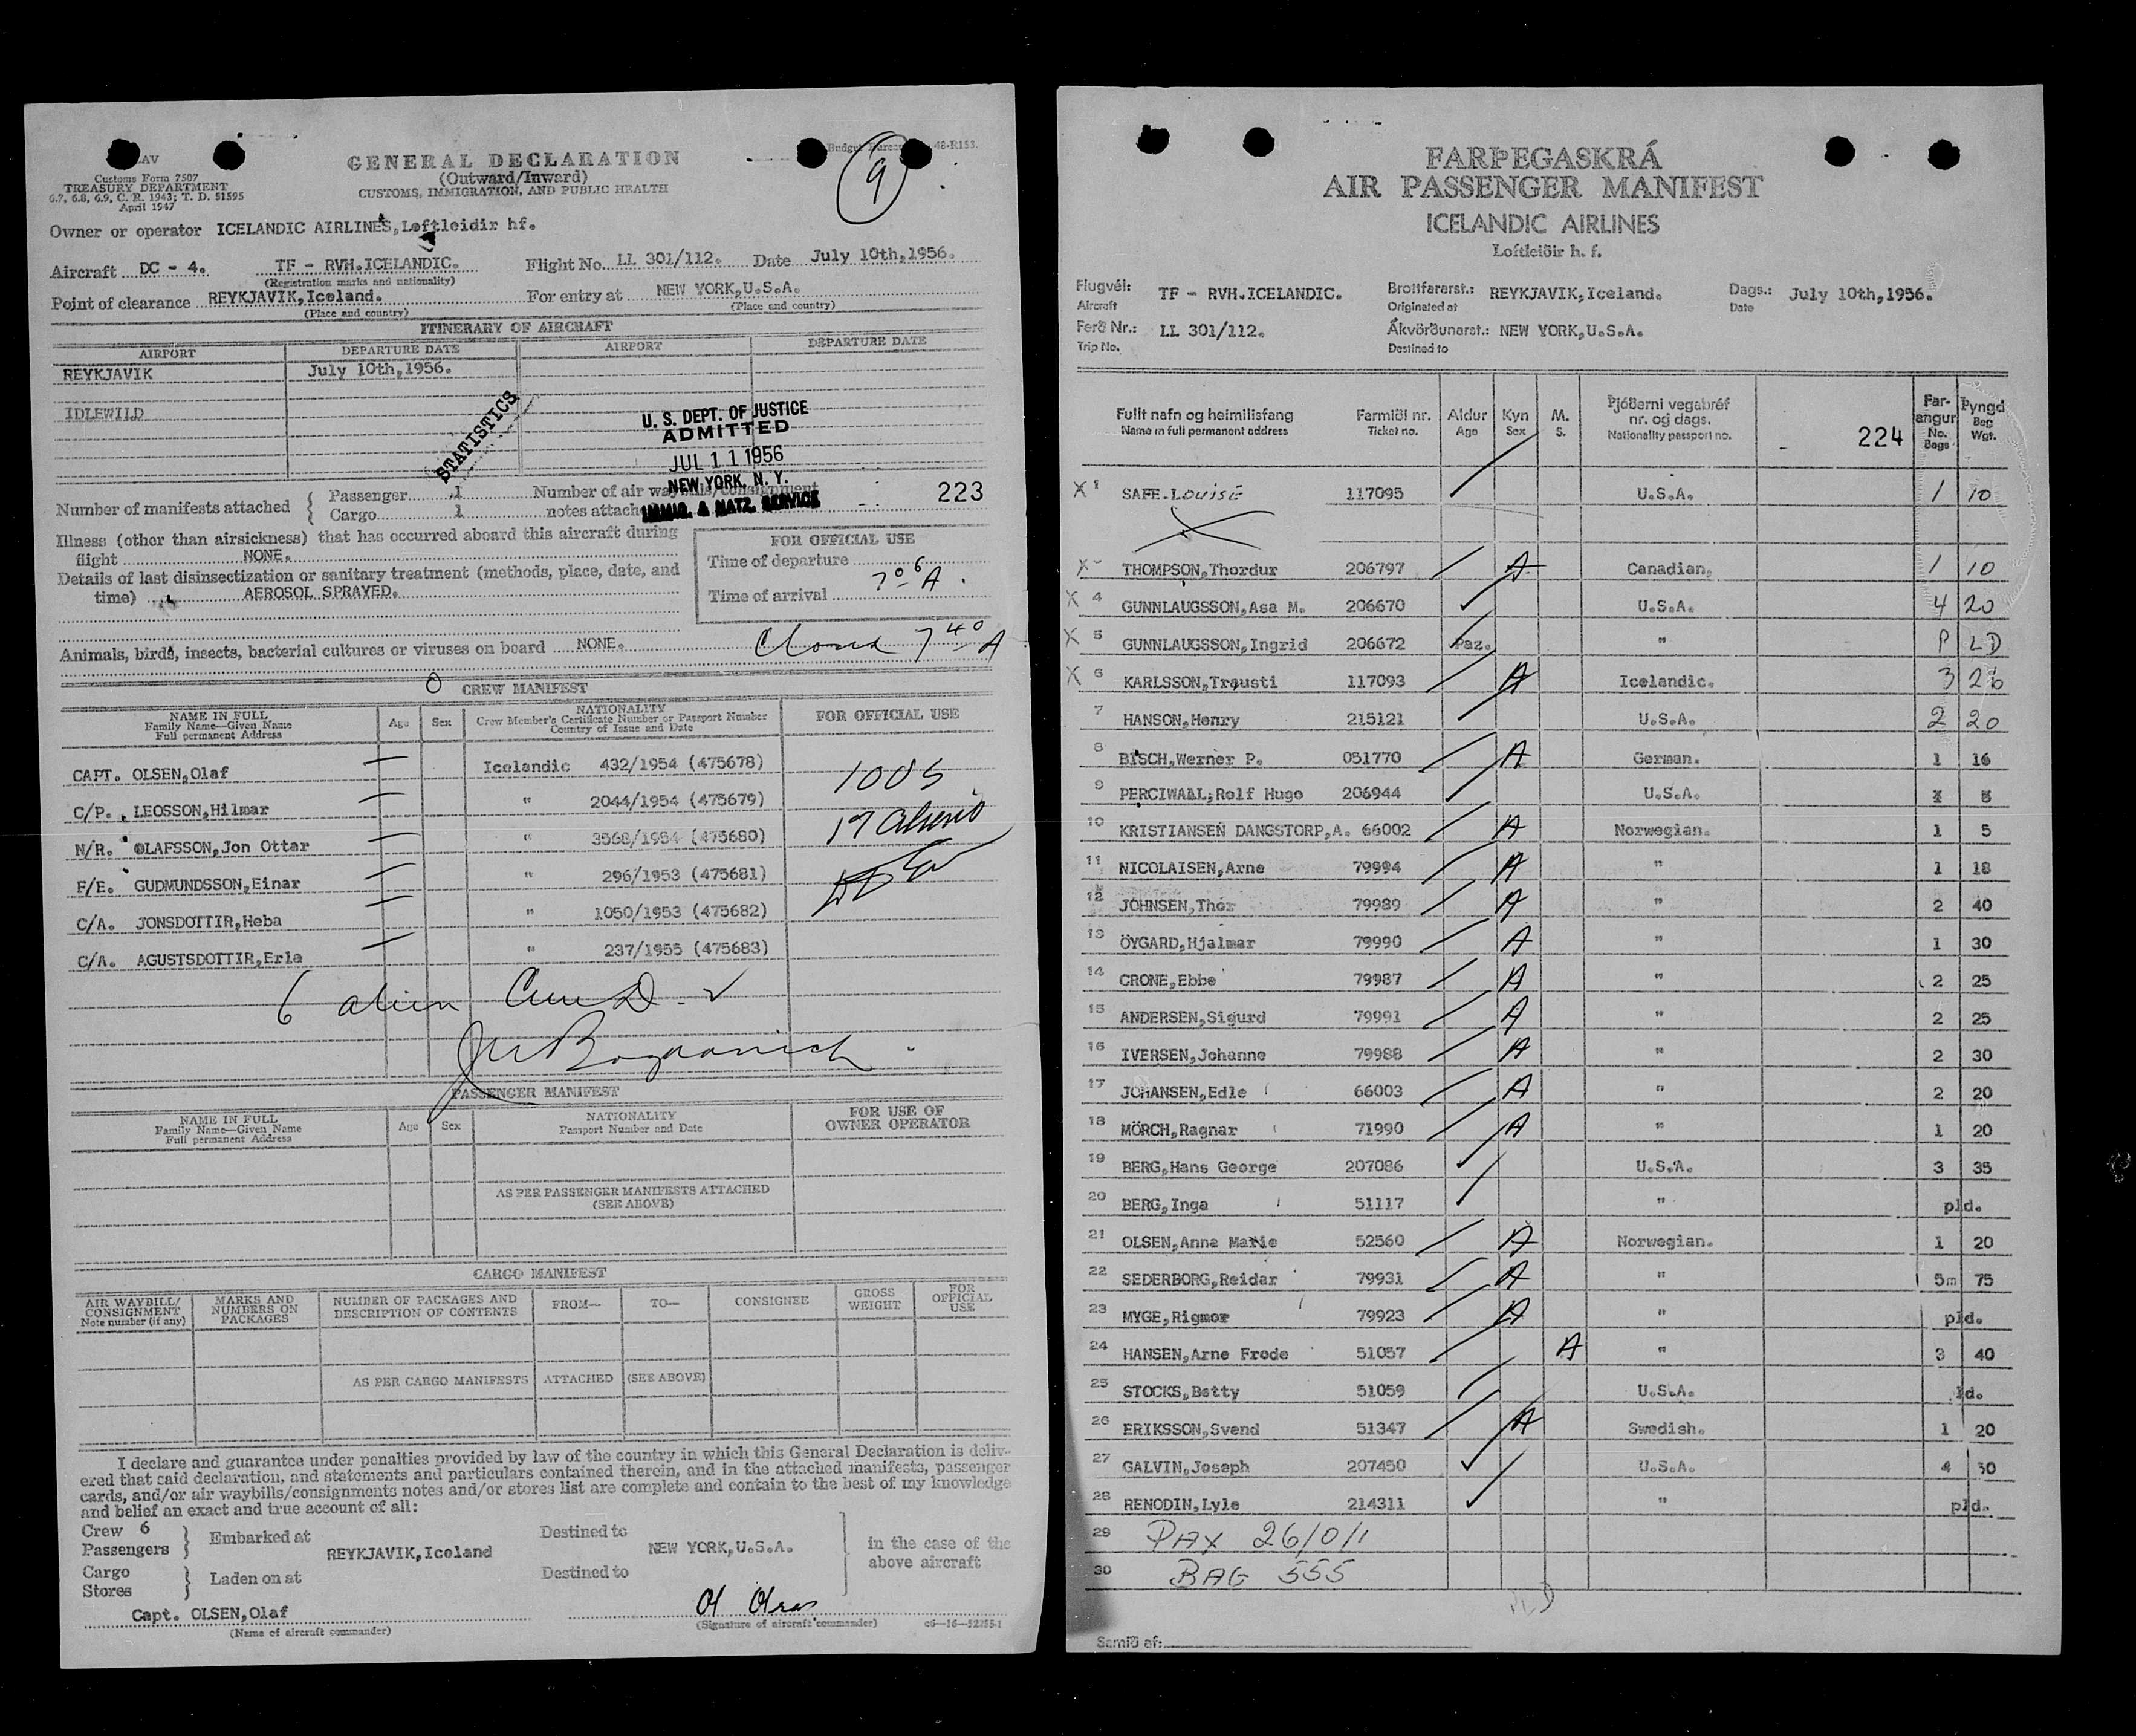 LAV
Customs Form 7507
TREASURY DEPARTMENT
6.7, 6.8, 6.9, C. R. 1943; T. D. 51595
April 1947
GENERAL DECLARATION
(Outward/Inward)
CUSTOMS, IMMIGRATION, AND PUBLIC HEALTH
Budget Bureau 48-R153.
9
Owner or operator ICELANDIC AIRLINES, Loftleidir hf.
Aircraft DC - 4. TF - RVH. ICELANDIC. Flight No. LL 301/112. Date July 10th, 1956.
(Registration marks and nationality)
Point of clearance REYKJAVIK, Iceland. For entry at NEW YORK, U.S.A.
(Place and country) (Place and country)
ITINERARY OF AIRCRAFT
AIRPORT DEPARTURE DATE AIRPORT DEPARTURE DATE
REYKJAVIK July 10th, 1956.
IDLEWILD
STATISTICS
U. S. DEPT. OF JUSTICE
ADMITTED
JUL 11 1956
NEW YORK, N. Y.
IMMIG. & NATZ. SERVICE
Number of manifests attached { Passenger 1 Cargo 1
Number of air waybills/consignment notes attached
223
Illness (other than airsickness) that has occurred aboard this aircraft during
flight NONE.
Details of last disinsectization or sanitary treatment (methods, place, date, and
time) AEROSOL SPRAYED.
FOR OFFICIAL USE
Time of departure
Time of arrival 7 06 A.
Animals, birds, insects, bacterial cultures or viruses on board NONE.
7 40 A
CREW MANIFEST
NAME IN FULL
Family Name—Given Name
Full permanent Address
Age Sex
NATIONALITY
Crew Member's Certificate Number or Passport Number
Country of Issue and Date
FOR OFFICIAL USE
CAPT. OLSEN, Olaf Icelandic 432/1954 (475678)
C/P. LEOSSON, Hilmar " 2044/1954 (475679)
N/R. OLAFSSON, Jon Ottar " 3568/1954 (475680)
F/E. GUDMUNDSSON, Einar " 296/1953 (475681)
C/A. JONSDOTTIR, Heba " 1050/1953 (475682)
C/A. AGUSTSDOTTIR, Erla " 237/1955 (475683)
10 US
17 Aliens
6 alien Crew
PASSENGER MANIFEST
NAME IN FULL
Family Name—Given Name
Full permanent Address
Age Sex
NATIONALITY
Passport Number and Date
FOR USE OF
OWNER OPERATOR
AS PER PASSENGER MANIFESTS ATTACHED
(SEE ABOVE)
CARGO MANIFEST
AIR WAYBILL/
CONSIGNMENT
Note number (if any)
MARKS AND
NUMBERS ON
PACKAGES
NUMBER OF PACKAGES AND
DESCRIPTION OF CONTENTS
FROM— TO— CONSIGNEE
GROSS
WEIGHT
FOR
OFFICIAL
USE
AS PER CARGO MANIFESTS ATTACHED (SEE ABOVE)
I declare and guarantee under penalties provided by law of the country in which this General Declaration is deliv-
ered that said declaration, and statements and particulars contained therein, and in the attached manifests, passenger
cards, and/or air waybills/consignments notes and/or stores list are complete and contain to the best of my knowledge
and belief an exact and true account of all:
Crew 6
Passengers } Embarked at REYKJAVIK, Iceland Destined to NEW YORK, U.S.A.
Cargo
Stores } Laden on at Destined to
in the case of the
above aircraft
Capt. OLSEN, Olaf
(Name of aircraft commander)
Ol Olsen
(Signature of aircraft commander) c6—16—52255-1
FARÞEGASKRÁ
AIR PASSENGER MANIFEST
ICELANDIC AIRLINES
Loftleiðir h. f.
Flugvél:
Aircraft TF - RVH. ICELANDIC.
Brottfararst.:
Originated at REYKJAVIK, Iceland.
Dags.:
Date July 10th, 1956.
Ferð Nr.:
Trip No. LL 301/112.
Ákvörðunarst.: NEW YORK, U.S.A.
Destined to
Fullt nafn og heimilisfang
Name in full permanent address
Farmiði nr.
Ticket no.
Aldur
Age
Kyn
Sex
M.
S.
Þjóðerni vegabréf
nr. og dags.
Nationality passport no.
224
Far-
angur
No.
Bags
Þyngd
Bag
Wgt.
X 1 SAFE. Louise 117095 U.S.A. 1 10
X THOMPSON, Thordur 206797 A Canadian. 1 10
X 4 GUNNLAUGSSON, Asa M. 206670 U.S.A. 4 20
X 5 GUNNLAUGSSON, Ingrid 206672 " P LD
X 6 KARLSSON, Trausti 117093 A Icelandic. 3 26
7 HANSON, Henry 215121 U.S.A. 2 20
8 BISCH, Werner P. 051770 A German. 1 16
9 PERCIWALL, Rolf Hugo 206944 U.S.A. 1 5
10 KRISTIANSEN DANGSTORP, A. 66002 A Norwegian. 1 5
11 NICOLAISEN, Arne 79994 A " 1 18
12 JOHNSEN, Thor 79989 A " 2 40
13 ÖYGARD, Hjalmar 79990 A " 1 30
14 CRONE, Ebbe 79987 A " 2 25
15 ANDERSEN, Sigurd 79991 A " 2 25
16 IVERSEN, Johanne 79988 A " 2 30
17 JOHANSEN, Edle 66003 A " 2 20
18 MÖRCH, Ragnar 71990 A " 1 20
19 BERG, Hans George 207086 U.S.A. 3 35
20 BERG, Inga 51117 " pld.
21 OLSEN, Anna Marie 52560 A Norwegian. 1 20
22 SEDERBORG, Reidar 79931 A " 5m 75
23 MYGE, Rigmor 79923 A " pld.
24 HANSEN, Arne Frede 51057 A " 3 40
25 STOCKS, Betty 51059 U.S.A. ld.
26 ERIKSSON, Svend 51347 A Swedish. 1 20
27 GALVIN, Joseph 207450 U.S.A. 4 30
28 RENODIN, Lyle 214311 " pld.
29 PAX 26/0/1
30 BAG 555
Samið af: